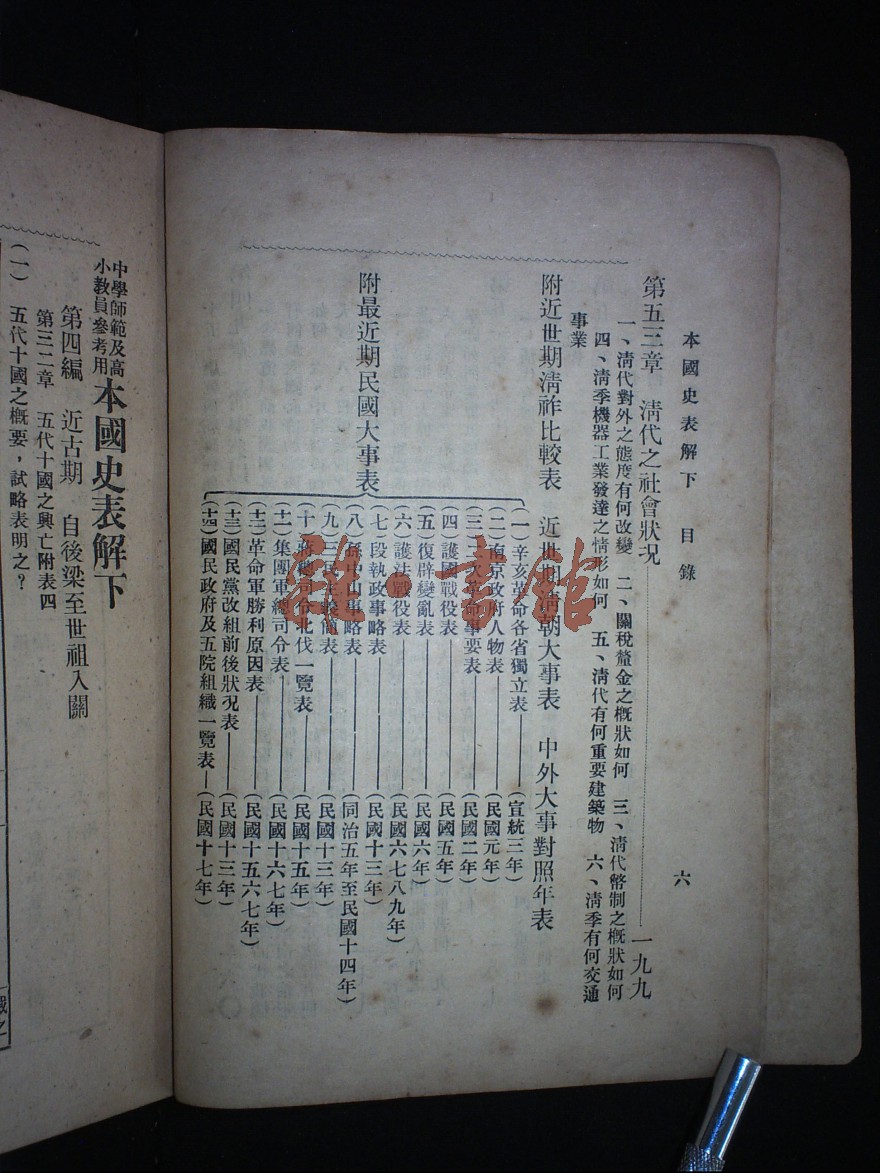 本國史表解下　目錄
六
第五三章　淸代之社會狀況 一九九
一、淸代對外之態度有何改變　二、關稅釐金之概狀如何　三、淸代幣制之概狀如何
四、淸季機器工業發達之情形如何　五、淸代有何重要建築物　六、淸季有何交通
事業
附近世期淸祚比較表　近世期淸朝大事表　中外大事對照年表
附最近期民國大事表
（一）辛亥革命各省獨立表——（宣統三年）
（二）南京政府人物表——（民國元年）
（三）二次革命事要表——（民國二年）
（四）護國戰役表——（民國五年）
（五）復辟變亂表——（民國六年）
（六）護法戰役表——（民國六七八九年）
（七）段執政事略表——（民國十三年）
（八）孫中山事略表——（同治五年至民國十四年）
（九）三民主義簡表——（民國十三年）
（十）蔣總司令北伐一覽表——（民國十五年）
（十一）集團軍總司令表——（民國十六七年）
（十二）革命軍勝利原因表——（民國十五六七年）
（十三）國民黨改組前後狀況表——（民國十三年）
（十四）國民政府及五院組織一覽表——（民國十七年）
中學師範及高
小敎員參考用
本國史表解下
第四編　近古期　自後梁至世祖入關
第三二章　五代十國之興亡附表四
（一）五代十國之概要，試略表明之？